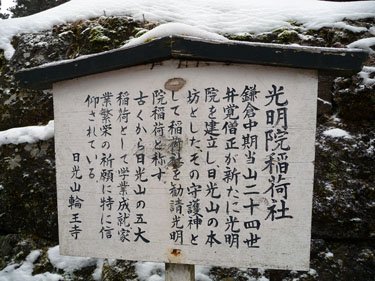 光明院稲荷社
鎌倉中期当山二十四世
弁覚僧正が新たに光明
院を建立し日光山の本
坊とした、その守護神と
して稲荷社を勧請光明
院稲荷と称す
古くから日光山の五大
稲荷として学業成就家
業繁栄の祈願に特に信
仰されている
日光山輪王寺